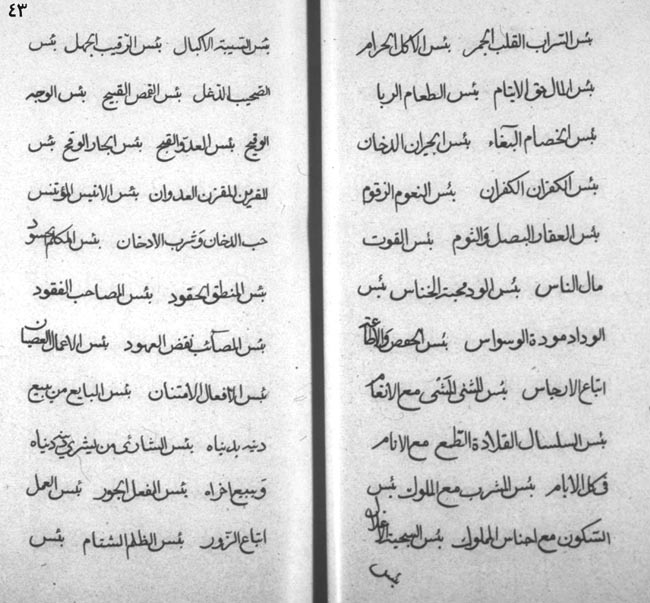 ٤٣
بئس الشراب القلب الخمر بئس الاكل الحرام
بئس المال حق الايتام بئس الطعام الربا
بئس الخصام البغاء بئس الجيران الدخان
بئس الكفران الكفران بئس النعوم الزقوم
بئس العقار البصل والثوم بئس القوت
مال الناس بئس الود محبة الخناس بئس
الوداد مودة الوسواس بئس الحفص
اتباع الارجاس بئس المشى المشى مع الانعام
بئس السلسال القلادة الطمع مع الانام
فى كل الايام بئس المشرب مع الملوك بئس
السكون مع اجناس المملوك بئس السجية
بئس
بئس الشيبة الاكبال بئس الرقيب الجهل بئس
الصحيب الدغل بئس القمص القبيح بئس الوجه
الوقيح بئس العدو القبيح بئس الجار الوقح بئس
القرين المقرن العدوان بئس الانيس المؤنس
حب الدخان وشرب الادخان بئس المكلم حسود
بئس المنطق الحقود بئس الصاحب الفقود
بئس المصائب نقض العهود بئس الاعمال العصيان
بئس الافعال الامتنان بئس البايع من يبيع
دينه بدنياه بئس الشارئ من يشرى دنياه
ويبيع اخراه بئس الفعل الجور بئس العمل
اتباع الزور بئس الظلم الشتام بئس